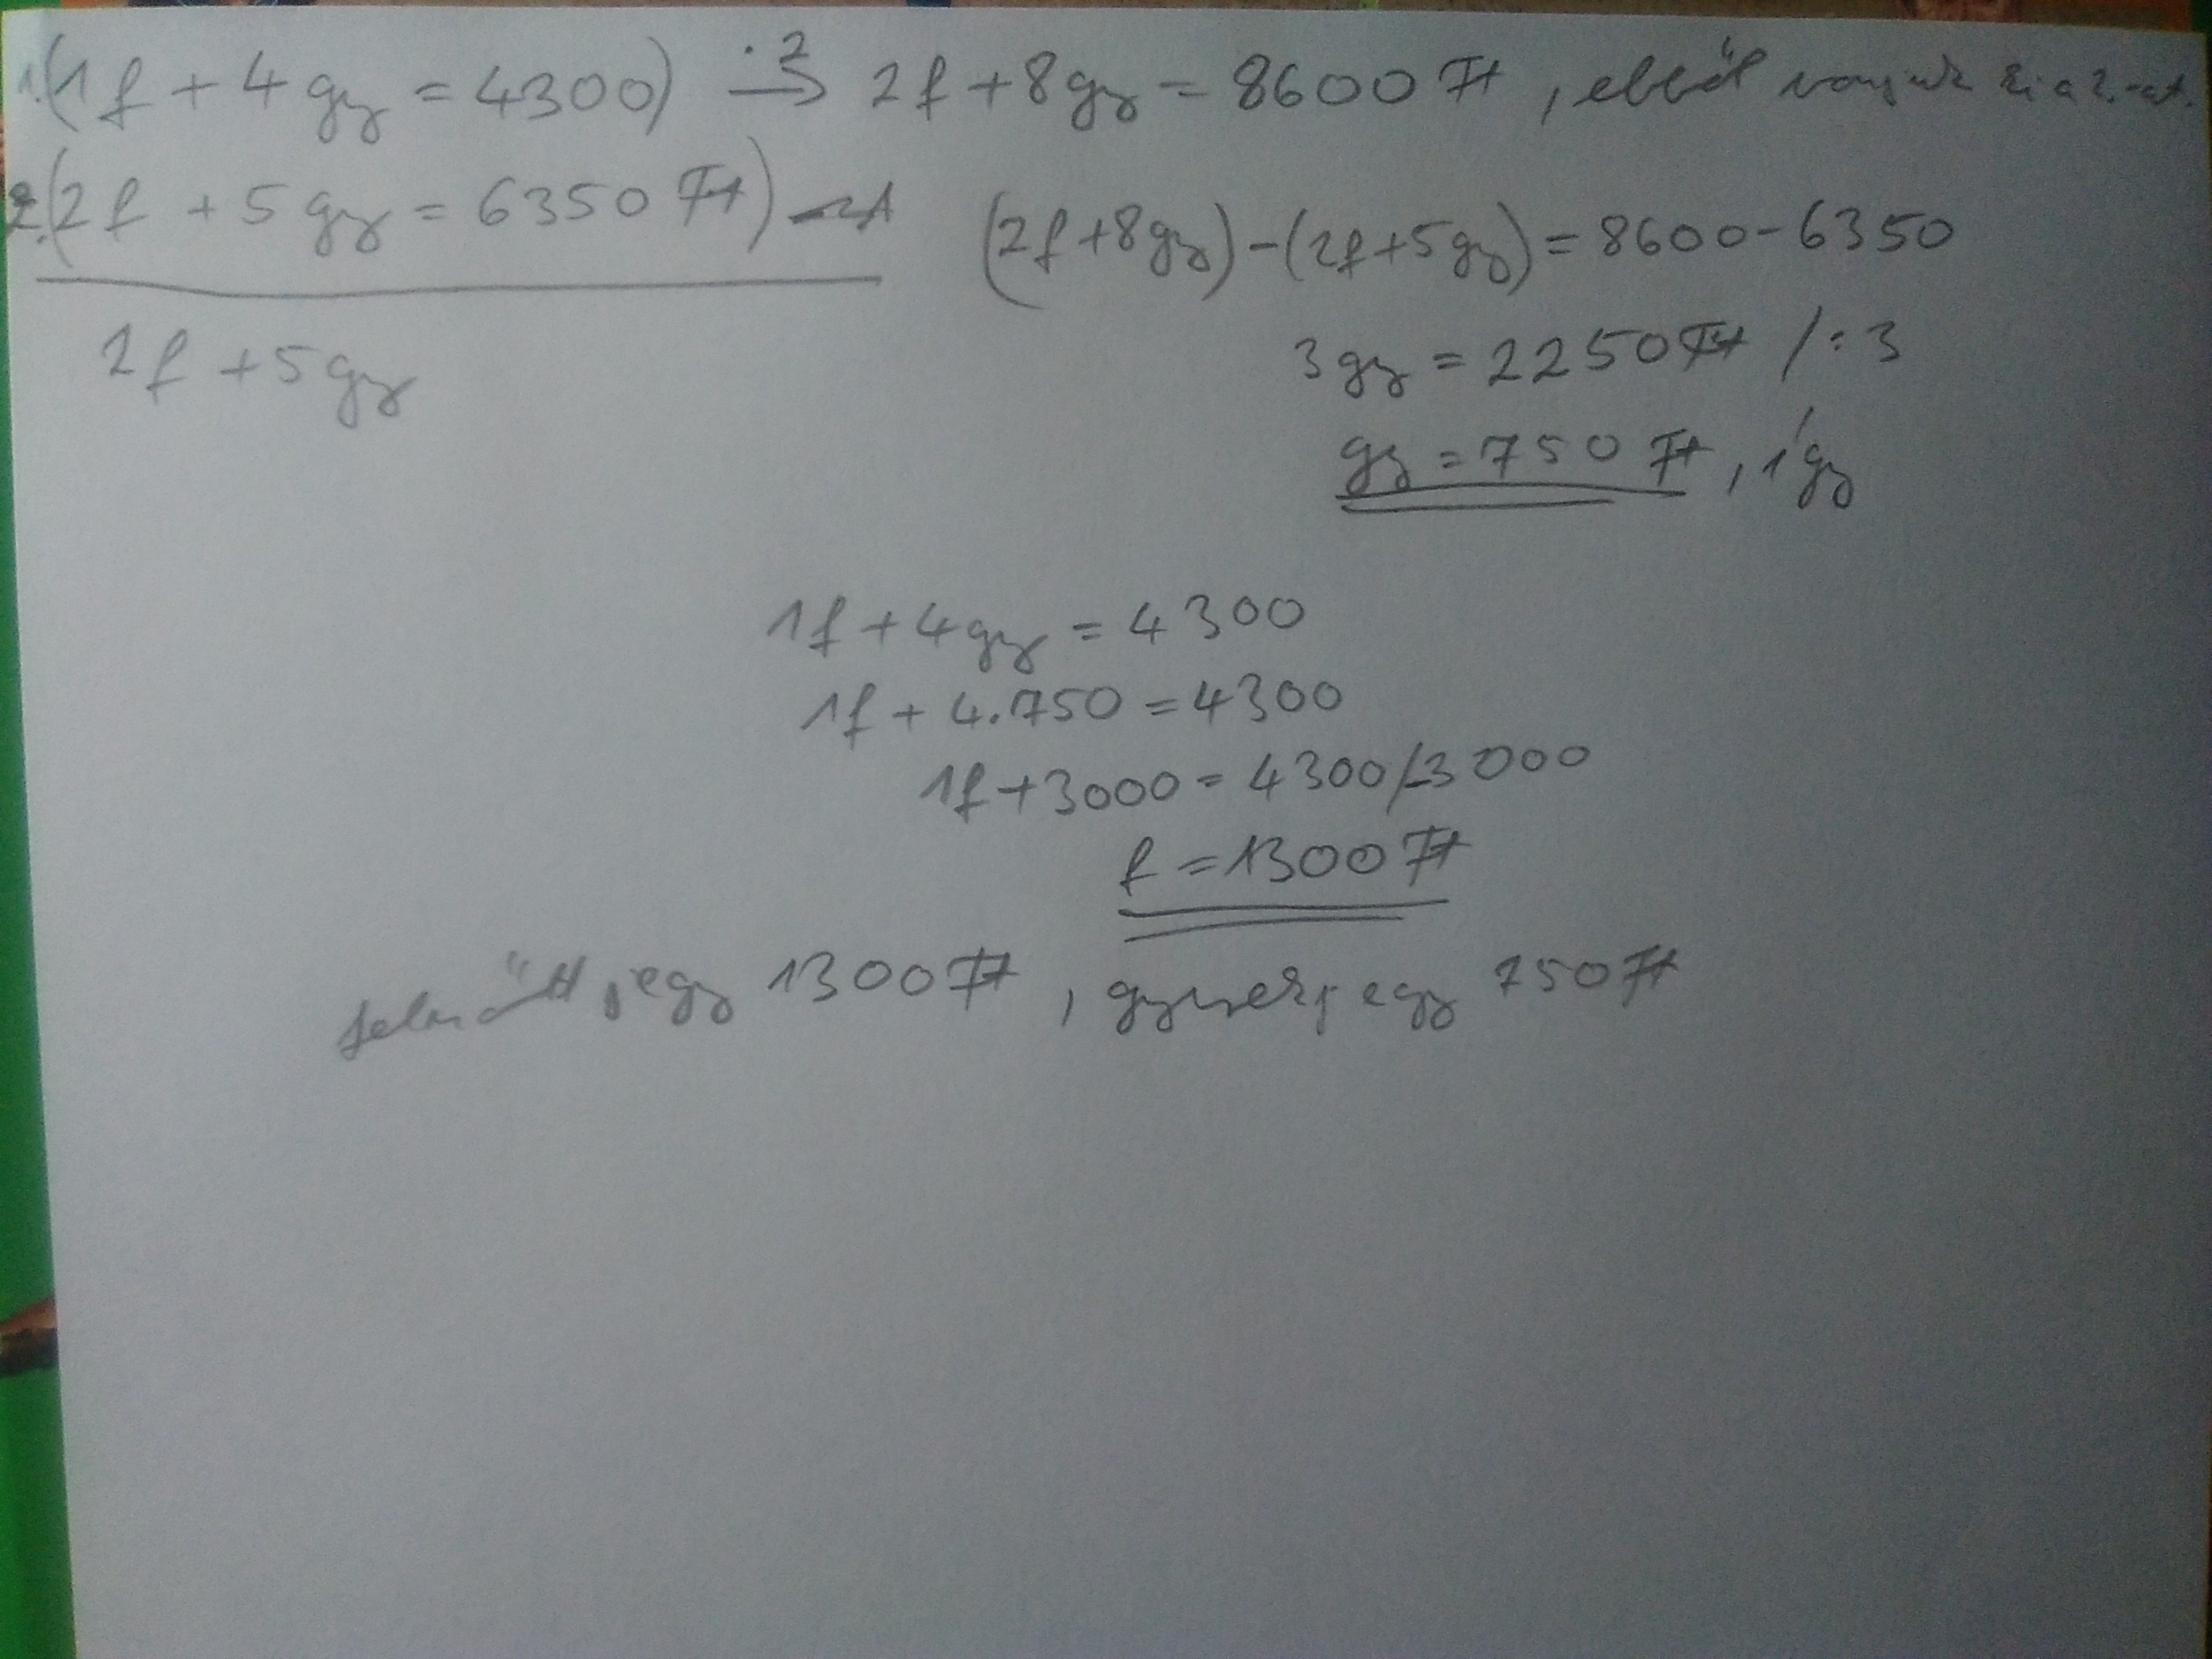 1. (1f + 4gy = 4300) ·2→ 2f + 8gy = 8600 Ft, ebből vonjuk ki a 2.-at.
2. (2f + 5gy = 6350 Ft)
(2f+8gy)-(2f+5gy)=8600-6350
2f + 5gy
3gy = 2250 Ft /:3
gy = 750 Ft, így
1f + 4gy = 4300
1f + 4·750 = 4300
1f + 3000 = 4300 /-3000
f = 1300 Ft
felnőtt jegy 1300 Ft, gyerekjegy 750 Ft